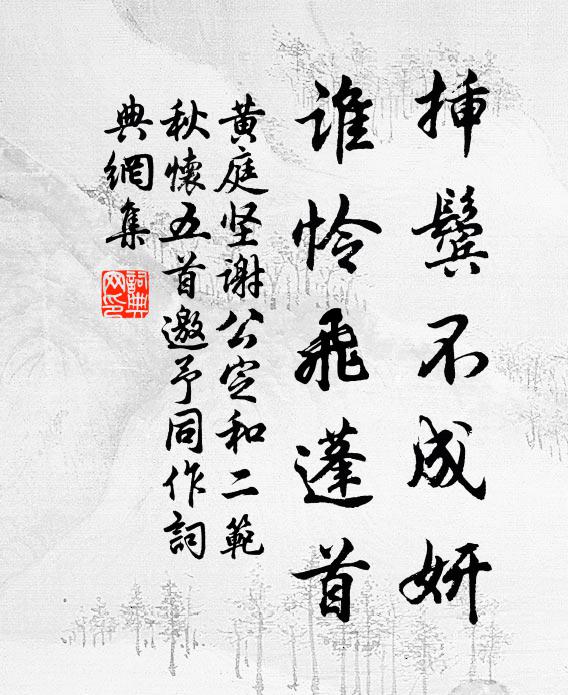 揷鬓不成妍
谁怜飛蓬首
黄庭坚谢公定和二範
秋懷五首邀予同作詞
典網集
詞典
网印